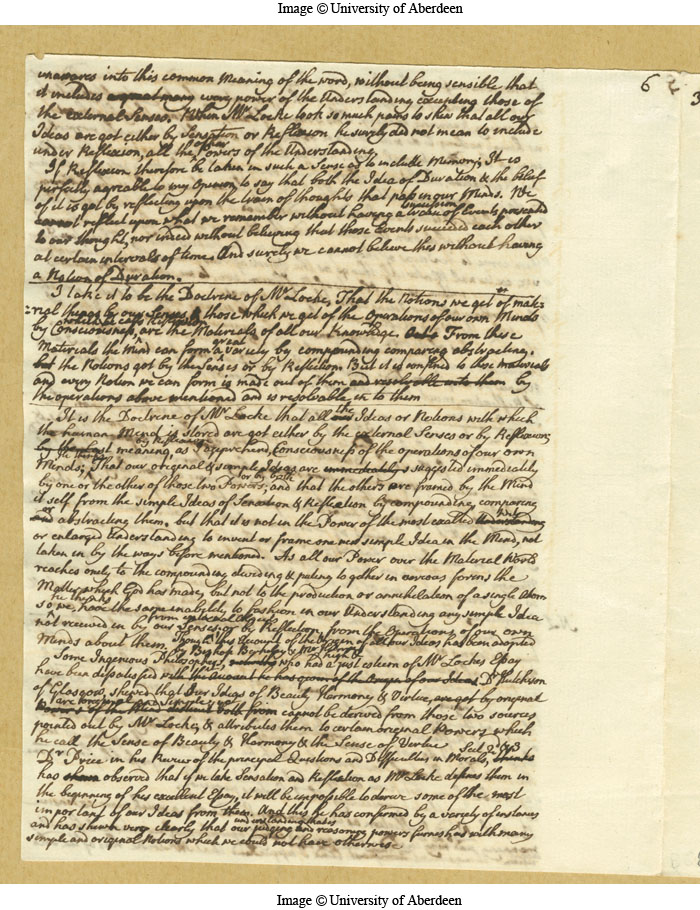 Image © University of Aberdeen
6
3
unawares into this common Meaning of the word, without being sensible that
it includes a great many every power of the Understanding excepting those of
the external Senses. When Mr Locke took so much pains to shew that all our
Ideas are got either by Sensation or Reflexion he surely did not mean to include
under Reflexion, all the other Powers of the Understanding.
If Reflexion therefore be taken in such a Sense as to include Memory, It is
perfectly agreable to my Opinion to say that both the Idea of Duration & the belief
of it is got by reflecting upon the train of thoughts that pass in our Minds. We
cannot reflect upon what we remember without having a train of Events presented
to our thought, nor indeed without believing that those Events succeeded each other
at certain intervals of time. And surely we cannot believe this without having
a Notion of Duration.
I take it to be the Doctrine of Mr Locke, That the Notions we get of mate-
-rial things by our Senses & those which we get of the Operations of our own Minds
by Consciousness, which he calls Reflexion are the Materials of all our Knowledge. From these
Materials the Mind can form a great variety by compounding comparing abstracting.
but the Notions got by the Senses or by Reflection. But it is confined to these materials
and every Notion we can form is made out of them and resolvable into them by
the operations above mentioned and is resolvable in to them
It is the Doctrine of Mr Locke that all the Ideas or Notions with which
the human Mind is stored are got either by the external Senses or by Reflexion;
by Reflexion meaning, as I apprehend, Consciousness of the operations of our own
Minds; That our original & simple Ideas are immediately suggested immediately
by one or the other of those two Powers, or by both and that the others are framed by the Mind
it self from the simple Ideas of Sensation & Reflection by compounding, comparing
and or abstracting them. but that it is not in the Power of the most exalted Understanding Wit
or enlarged Understanding to invent or frame one new simple Idea in the Mind, not
taken in by the ways before mentioned. As all our Power over the Material World
reaches only to the compounding dividing & puting to gether in various forms the
Matter which God has made, but not to the production or annihilation of a single Atom
so he thinks we, have the same inability to fashion in our Understanding any simple Idea
not received in by our Senses, from external objects or be Reflection from the Operations of our own
Minds about them. Though this Account of the Origin of all our Ideas has been adopted
by Bishop Berkeley & Mr Hume
Some Ingenious Philosophers, who had a just & high esteem of Mr Lockes Essay
have been dissatisfied with the Account he has given of the Origin of our Ideas Dr Hutchson
of Glasgow, shewed that Our Ideas of Beauty Harmony & Vertue, are got by original
are cannot be derived from those two sources
pointed out by Mr Locke, & attributes them to certain original Powers which
he call the Sense of Beauty & Harmony & the Sense of Vertue
Dr Price in his Review of the principal Questions and Difficulties in Morals,
has observed that if we take Sensation and Reflection as Mr Locke defines them in
the beginning of his excellent Essay, it will be impossible to derive some of the most
important of our Ideas from them. And this he has confirmed by a variety of instances
and has shewn very clearly that our understanding that is our judging and reasoning powers furnishes with many
simple and original Notions which we could not have otherwise
Image © University of Aberdeen